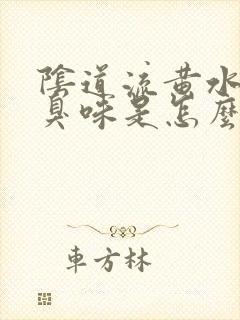 陰道流黄水
臭味是怎麼
車方林